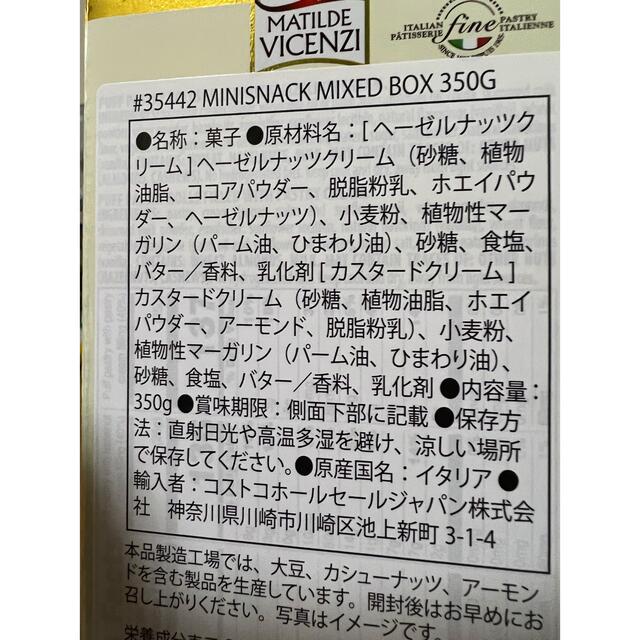 MATILDE
VICENZI
ITALIAN
PÂTISSERIE
fine
PASTRY
ITALIENNE
#35442 MINISNACK MIXED BOX 350G
●名称：菓子 ●原材料名：[ ヘーゼルナッツク
リーム ] ヘーゼルナッツクリーム（砂糖、植物
油脂、ココアパウダー、脱脂粉乳、ホエイパウ
ダー、ヘーゼルナッツ）、小麦粉、植物性マー
ガリン（パーム油、ひまわり油）、砂糖、食塩、
バター／香料、乳化剤 [ カスタードクリーム ]
カスタードクリーム（砂糖、植物油脂、ホエイ
パウダー、アーモンド、脱脂粉乳）、小麦粉、
植物性マーガリン（パーム油、ひまわり油）、
砂糖、食塩、バター／香料、乳化剤 ●内容量：
350g ●賞味期限：側面下部に記載 ●保存方
法：直射日光や高温多湿を避け、涼しい場所
で保存してください。●原産国名：イタリア ●
輸入者：コストコホールセールジャパン株式会
社 神奈川県川崎市川崎区池上新町 3-1-4
本品製造工場では、大豆、カシューナッツ、アーモン
ドを含む製品を生産しています。開封後はお早めにお
召し上がりください。写真はイメージです。